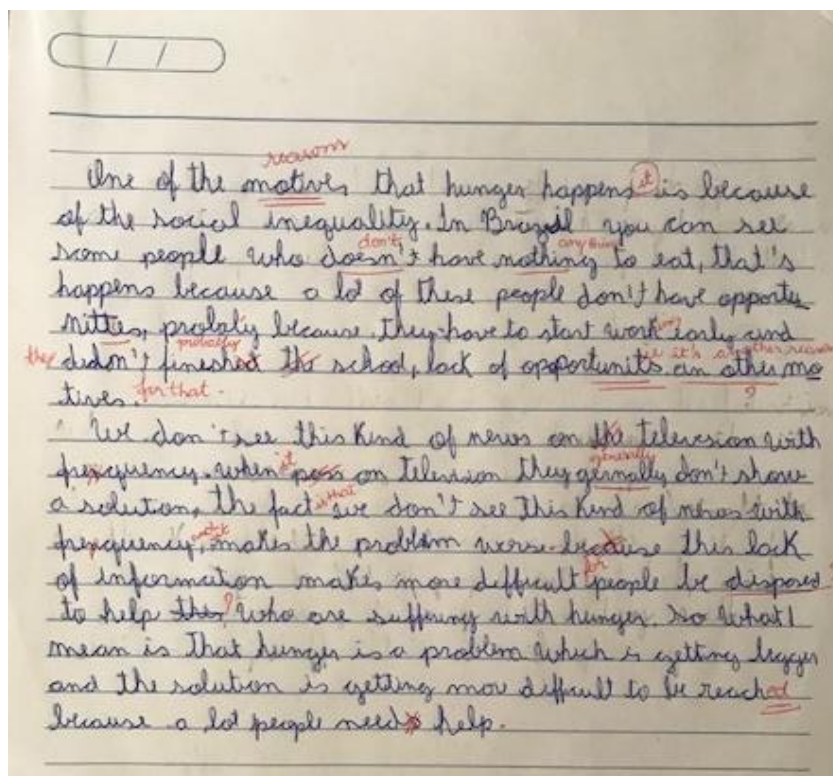 / /
reasons
One of the motives that hunger happens it is because
of the social inequality. In Brazil you can see
don't anything
some people who doesn't have nothing to eat, that's
happens because a lot of these people don't have opportu
nitties, probaly because they have to start work early and
they probably
didn't fineshed the school, lack of opportunits an other mo
tives. for that.
?
We don't see this kind of news on the television with
it generally
frequency. when pass on television they gernally don't show
is that
a solution, the fact we don't see this kind of news with
frequency, makes the problem worse because this lack
for
of information makes more difficult people be disposed
to help this? who are suffering with hunger. so what I
mean is that hunger is a problem which is getting bigger
and the solution is getting mor difficult to be reached
because a lot people needs help.